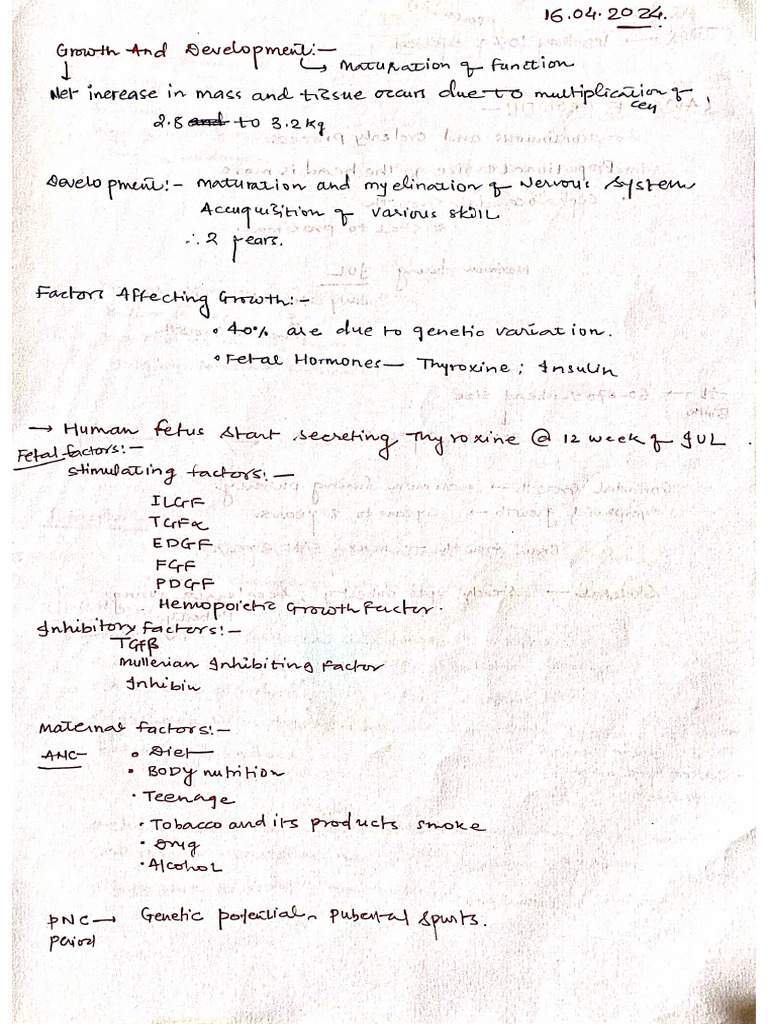 16.04.2024.
Growth And Development:-
↳ Maturation of function
↓
Net increase in mass and tissue occurs due to multiplication of cell,
2.8 and to 3.2 kg
Development:- maturation and myelination of Nervous System
Accuquisition of various skill
∴ 2 years.
Factors Affecting Growth:-
• 40% are due to genetic variation.
• Fetal Hormones— Thyroxine; Insulin
→ Human fetus start secreting Thyroxine @ 12 week of IUL.
Fetal factors:-
stimulating factors:—
ILGF
TGFα
EDGF
FGF
PDGF
Hemopoietic Growth Factor.
Inhibitory factors:-
TGFβ
Mullerian Inhibiting Factor
Inhibin
Maternal factors:-
ANC- • Diet
• BODY nutrition
• Teenage
• Tobacco and its products smoke
• Drug
• Alcohol
PNC → Genetic potential, Pubertal Spurts.
Period